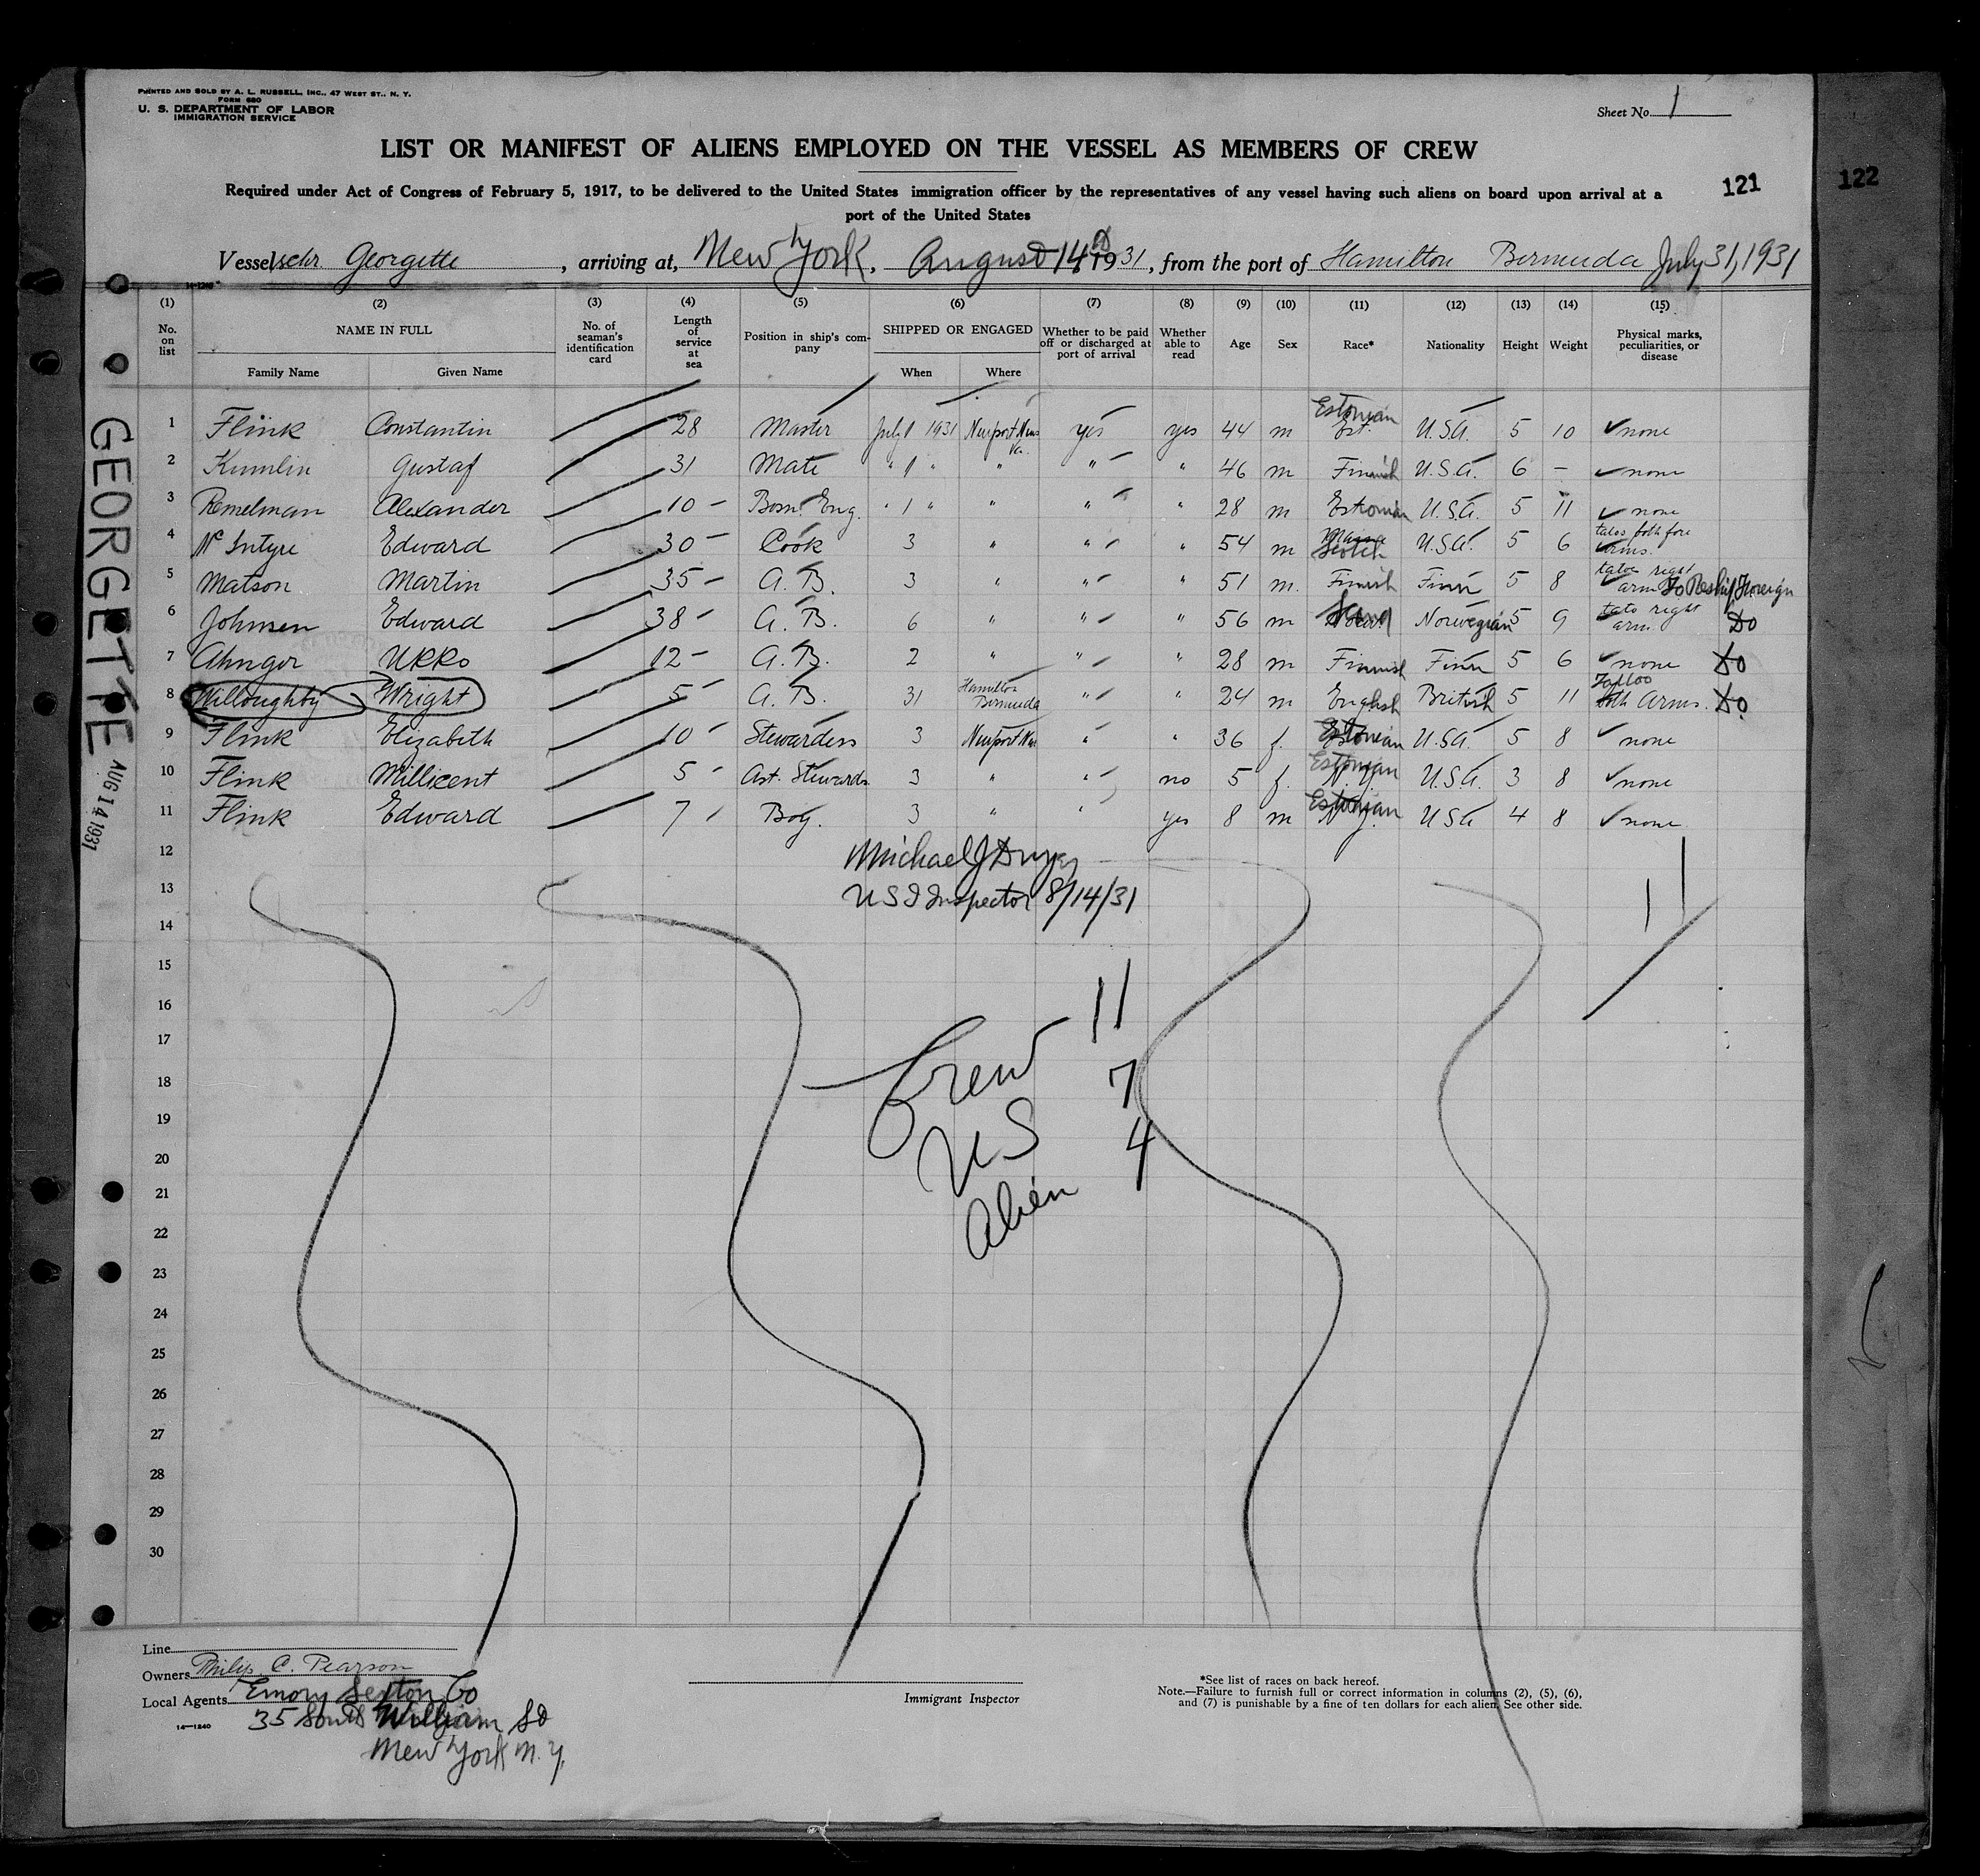 PRINTED AND SOLD BY A. L. RUSSELL, INC., 47 WEST ST., N. Y.
FORM 680
U. S. DEPARTMENT OF LABOR
IMMIGRATION SERVICE
Sheet No. 1
LIST OR MANIFEST OF ALIENS EMPLOYED ON THE VESSEL AS MEMBERS OF CREW
Required under Act of Congress of February 5, 1917, to be delivered to the United States immigration officer by the representatives of any vessel having such aliens on board upon arrival at a
port of the United States
121
122
Vessel schr Georgette, arriving at, New York, August 14th 1931, from the port of Hamilton Bermuda July 31, 1931
(1) (2) (3) (4) (5) (6) (7) (8) (9) (10) (11) (12) (13) (14) (15)
No. on list NAME IN FULL Family Name Given Name No. of seaman's identification card Length of service at sea Position in ship's company SHIPPED OR ENGAGED When Where Whether to be paid off or discharged at port of arrival Whether able to read Age Sex Race* Nationality Height Weight Physical marks, peculiarities, or disease
1 Flink Constantin 28 Master July 1 1931 Newport News Va. yes yes 44 m Estonian Est. U.S.A. 5 10 none
2 Kumlin Gustaf 31 Mate " 1 " " " " 46 m Finnish U.S.A. 6 – none
3 Remelman Alexander 10 Bosn. Eng. " 1 " " " " 28 m Estonian U.S.A. 5 11 none
4 Mc Intyre Edward 30 Cook 3 " " " 54 m Scotch U.S.A. 5 6 tatos both fore arms.
5 Matson Martin 35 A. B. 3 " " " 51 m. Finish Finn 5 8 tatoe right arm To Reship Foreign
6 Johnsen Edward 38 A. B. 6 " " " 56 m Norwegian 5 9 tato right arm Do
7 Ahnger Urko 12 A. B. 2 " " " 28 m Finnish Finn 5 6 none Do
8 Willoughby Wright 5 A. B. 31 Hamilton Bermuda " " 24 m English British 5 11 Tattoo both Arms. Do
9 Flink Elizabeth 10 Stewardess 3 Newport News " " 36 f. Estonian U.S.A. 5 8 none
10 Flink Millicent 5 Ast. Stewards 3 " " no 5 f. Estonian N.Y. U.S.A. 3 8 none
11 Flink Edward 7 Boy. 3 " " yes 8 m Estonian N.Y. USA 4 8 none
12
13
14
15
16
17
18
19
20
21
22
23
24
25
26
27
28
29
30
Michael J Dwyer
U S I Inspector 8/14/31
11
Crew 11
US 7
Alien 4
GEORGETTE AUG 14 1931
Line
Owners Philip C. Pearson
Local Agents Emory Sexton Co
35 South William St
New York N. Y.
14—1240
Immigrant Inspector
*See list of races on back hereof.
Note.—Failure to furnish full or correct information in columns (2), (5), (6),
and (7) is punishable by a fine of ten dollars for each alien. See other side.